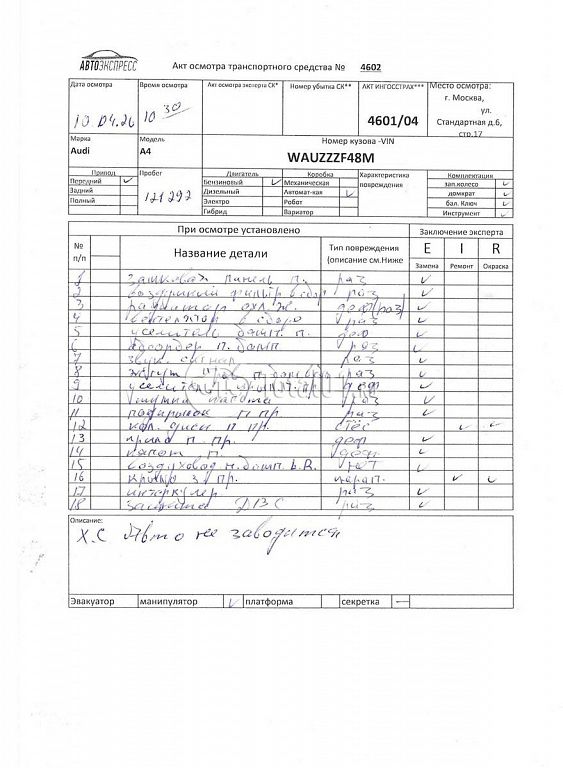 АВТОЭКСПРЕСС
Акт осмотра транспортного средства № 4602
Дата осмотра
Время осмотра
Акт осмотра эксперта СК*
Номер убытка СК**
АКТ ИНГОССТРАХ***
Место осмотра:
г. Москва,
ул.
Стандартная д.6,
стр.17
10.04.26
10 30
4601/04
Марка
Модель
Номер кузова -VIN
Audi
A4
WAUZZZF48M
Привод
Пробег
Двигатель
Коробка
Характеристика
повреждения
Комплектация
Передний ✓
121292
Бензиновый ✓
Механическая
зап.колесо ✓
Задний
Дизельный
Автомат-кая ✓
домкрат ✓
Полный
Электро
Робот
бал. Ключ ✓
Гибрид
Вариатор
Инструмент ✓
При осмотре установлено
Заключение эксперта
№
п/п
Название детали
Тип повреждения
(описание см.Ниже
E I R
Замена Ремонт Окраска
1 панель п. раз ✓
2 раз ✓
3 радиатор охл. ж. деф (раз) ✓
4 в сборе раз ✓
5 усилитель бамп. п. деф ✓
6 абсорбер п. бамп раз ✓
7 звук. сигнал раз ✓
8 жгут пров. раз ✓
9 усилитель деф ✓
10 раз ✓
11 подкрылок п пр. раз ✓
12 кол. диск п пр. ✓ ✓
13 крыло п. пр. деф ✓
14 капот п. деф ✓
15 воздуховод н. бамп. ✓
16 крыло з пр. царап. ✓ ✓
17 интеркулер раз ✓
18 защита ДВС раз ✓
Описание:
Х.С Авто не заводится
Эвакуатор манипулятор ✓ платформа секретка —